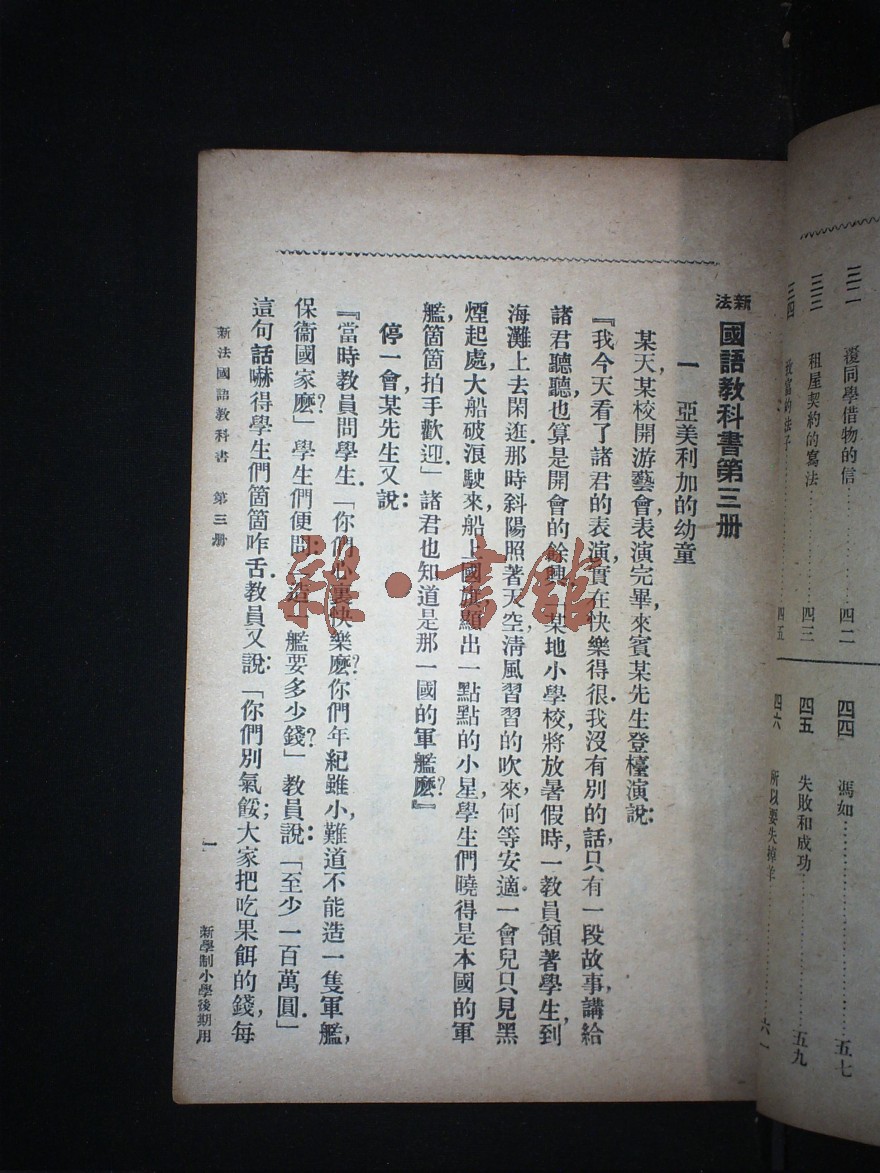 三二　覆同學借物的信……四二
三三　租屋契約的寫法……四三
三四　　　的法子……四五
四四　馮如……五七
四五　失敗和成功……五九
四六　所以要失掉羊……六一
新法國語教科書第三册
一　亞美利加的幼童
某天某校開游藝會，表演完畢，來賓某先生登檯演說：
『我今天看了諸君的表演，實在快樂得很。我沒有別的話，只有一段故事，講給
諸君聽聽，也算是開會的餘興。某地小學校，將放暑假時，一教員領著學生，到
海灘上去閑逛。那時斜陽照著天空，清風習習的吹來，何等安適。一會兒只見黑
煙起處，大船破浪駛來，船上國旗，顯出一點點的小星，學生們曉得是本國的軍
艦，箇箇拍手歡迎」諸君也知道是那一國的軍艦麽？』
停一會，某先生又說：
『當時教員問學生．「你們心裏快樂麽？你們年紀雖小，難道不能造一隻軍艦，
保衞國家麽？」學生們便問：「造一艦要多少錢？」教員說：「至少一百萬圓．」
這句話嚇得學生們箇箇咋舌．教員又說：「你們別氣餒；大家把吃果餌的錢，每
新法國語教科書　第三册
一
新學制小學後期用
雜·書館